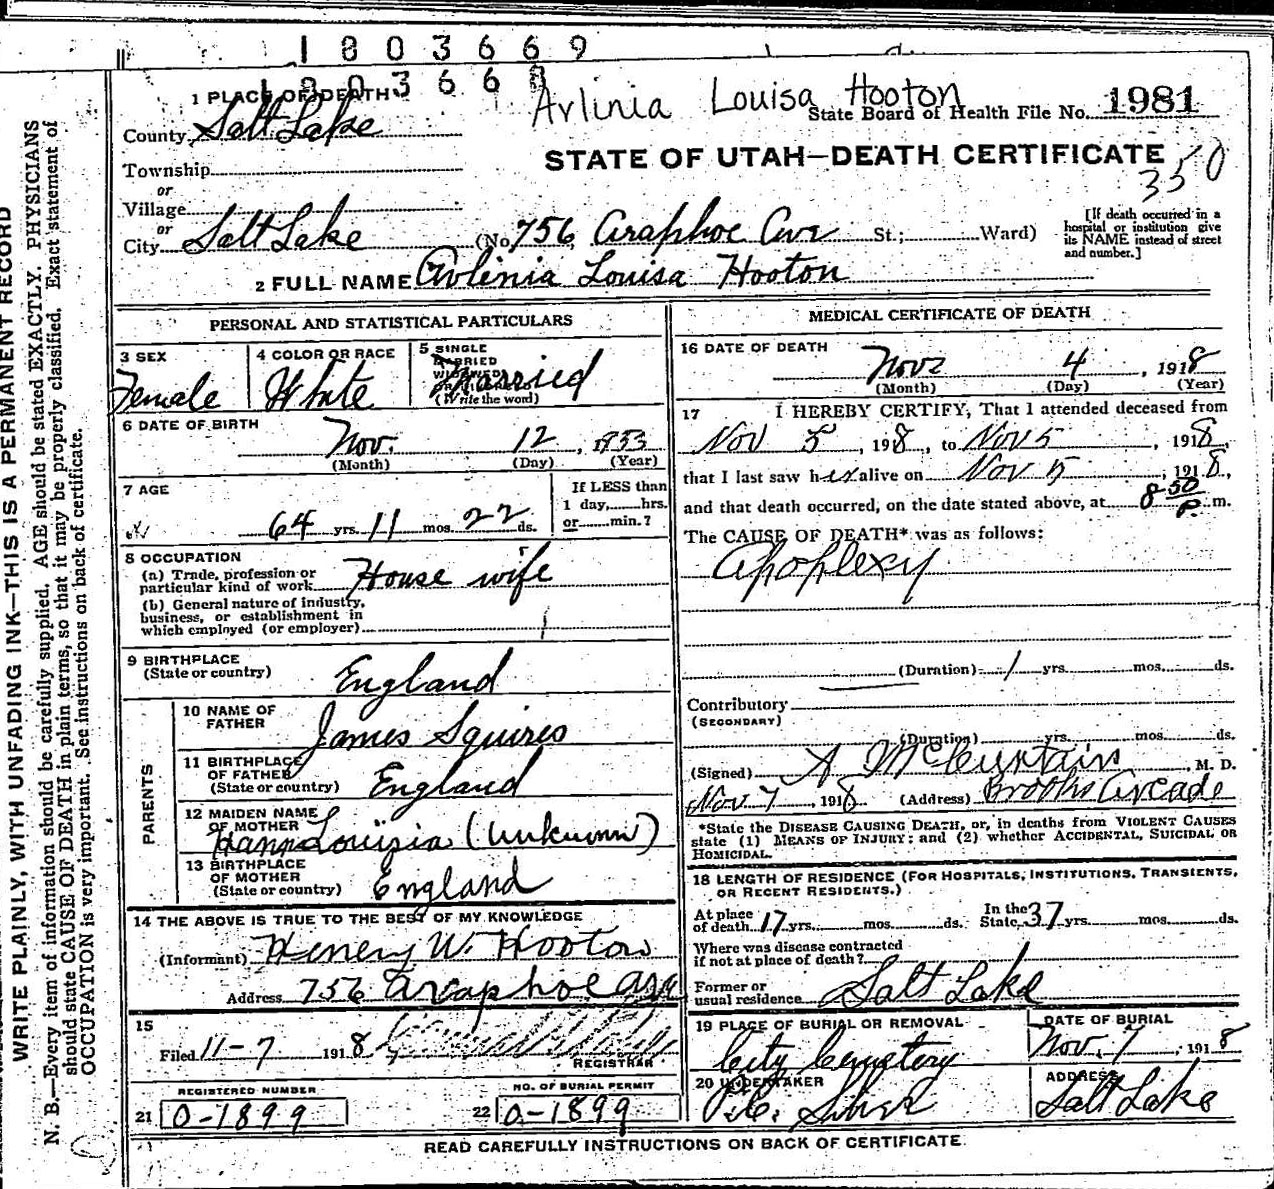 1803669
1803668
Arlinia Louisa Hooton
1 PLACE OF DEATH
State Board of Health File No. 1981
County Salt Lake
STATE OF UTAH—DEATH CERTIFICATE
350
Township
or
Village
or
City Salt Lake (No. 756 Araphoe Ave St.; Ward)
[If death occurred in a
hospital or institution give
its NAME instead of street
and number.]
2 FULL NAME Arlinia Louisa Hooton
PERSONAL AND STATISTICAL PARTICULARS
3 SEX
Female
4 COLOR OR RACE
White
5 SINGLE
MARRIED
WIDOWED
OR DIVORCED
(Write the word)
Married
6 DATE OF BIRTH
Nov. 12, 1853
(Month) (Day) (Year)
7 AGE
64 yrs. 11 mos. 22 ds.
If LESS than
1 day, hrs.
or min.?
8 OCCUPATION
(a) Trade, profession or
particular kind of work House wife
(b) General nature of industry,
business, or establishment in
which employed (or employer)
9 BIRTHPLACE
(State or country) England
PARENTS
10 NAME OF
FATHER James Squires
11 BIRTHPLACE
OF FATHER
(State or country) England
12 MAIDEN NAME
OF MOTHER
Hann Louizia (Unknown)
13 BIRTHPLACE
OF MOTHER
(State or country) England
14 THE ABOVE IS TRUE TO THE BEST OF MY KNOWLEDGE
(Informant) Henery W. Hooton
Address 756 Araphoe Ave
15
Filed 11-7 1918
REGISTRAR
REGISTERED NUMBER
21 0-1899
NO. OF BURIAL PERMIT
22 0-1899
MEDICAL CERTIFICATE OF DEATH
16 DATE OF DEATH
Nov 4, 1918
(Month) (Day) (Year)
17 I HEREBY CERTIFY, That I attended deceased from
Nov 5, 1918, to Nov 5, 1918,
that I last saw her alive on Nov 5, 1918,
and that death occurred, on the date stated above, at 8 50 P. m.
The CAUSE OF DEATH* was as follows:
Apoplexy
(Duration) 1 yrs. mos. ds.
Contributory
(SECONDARY)
(Duration) yrs. mos. ds.
(Signed) A McCurtain, M. D.
Nov 7, 1918 (Address) Brooks Arcade
*State the DISEASE CAUSING DEATH, or, in deaths from VIOLENT CAUSES
state (1) MEANS OF INJURY; and (2) whether ACCIDENTAL, SUICIDAL OR
HOMICIDAL.
18 LENGTH OF RESIDENCE (FOR HOSPITALS, INSTITUTIONS, TRANSIENTS,
OR RECENT RESIDENTS.)
At place
of death 17 yrs. mos. ds.
In the
State 37 yrs. mos. ds.
Where was disease contracted
if not at place of death?
Former or
usual residence Salt Lake
19 PLACE OF BURIAL OR REMOVAL
City Cemetery
DATE OF BURIAL
Nov. 7, 1918
20 UNDERTAKER
ADDRESS
Salt Lake
READ CAREFULLY INSTRUCTIONS ON BACK OF CERTIFICATE.
WRITE PLAINLY, WITH UNFADING INK—THIS IS A PERMANENT RECORD
N. B.—Every item of information should be carefully supplied. AGE should be stated EXACTLY. PHYSICIANS
should state CAUSE OF DEATH in plain terms, so that it may be properly classified. Exact statement of
OCCUPATION is very important. See instructions on back of certificate.